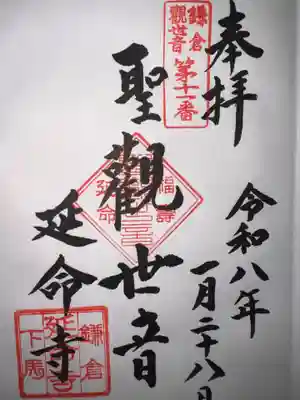 奉拝
令和八年
一月二十八日
鎌倉
観世音
第十一番
聖觀世音
福壽
延命
延命寺
鎌倉
延命寺
下馬